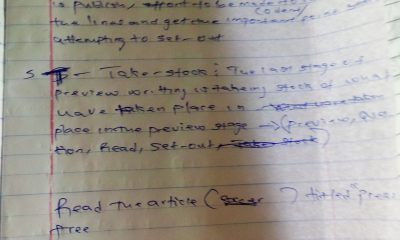 is publish, effort to be made to
the lines and get the important
attempting to set-out
5 - Take stock: The last stage of
preview writing is taking stock of what
have taken place in
place in the preview stage → (preview, Que
tion, Read, Set-out, Take stock)
Read the article ( ) titled "Free
free